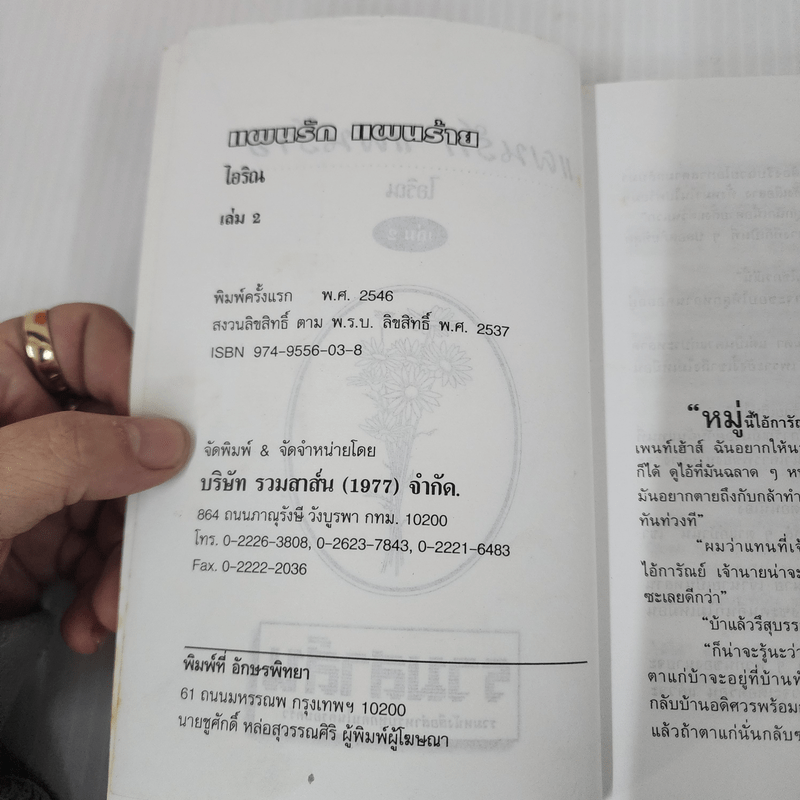 แผนรัก แผนร้าย
ไอริณ
เล่ม 2
พิมพ์ครั้งแรก พ.ศ. 2546
สงวนลิขสิทธิ์ ตาม พ.ร.บ. ลิขสิทธิ์ พ.ศ. 2537
ISBN 974-9556-03-8
จัดพิมพ์ & จัดจำหน่ายโดย
บริษัท รวมสาส์น (1977) จำกัด.
864 ถนนภาณุรังษี วังบูรพา กทม. 10200
โทร. 0-2226-3808, 0-2623-7843, 0-2221-6483
Fax. 0-2222-2036
พิมพ์ที่ อักษรพิทยา
61 ถนนมหรรณพ กรุงเทพฯ 10200
นายชูศักดิ์ หล่อสุวรรณศิริ ผู้พิมพ์ผู้โฆษณา
“หมู่นี้ไอ้การัณ
เพนท์เฮ้าส์ ฉันอยากให้นา
ก็ได้ ดูไอ้ที่มันฉลาด ๆ ห
มันอยากตายถึงกับกล้าทำ
ทันท่วงที”
“ผมว่าแทนที่เจ้
ไอ้การัณย์ เจ้านายน่าจะ
ซะเลยดีกว่า”
“บ้าแล้วรึสุบรร
“ก็น่าจะรู้นะว่า
ตาแก่บ้าจะอยู่ที่บ้านพั
กลับบ้านอดิศวรพร้อม
แล้วถ้าตาแก่นั่นกลับๆ